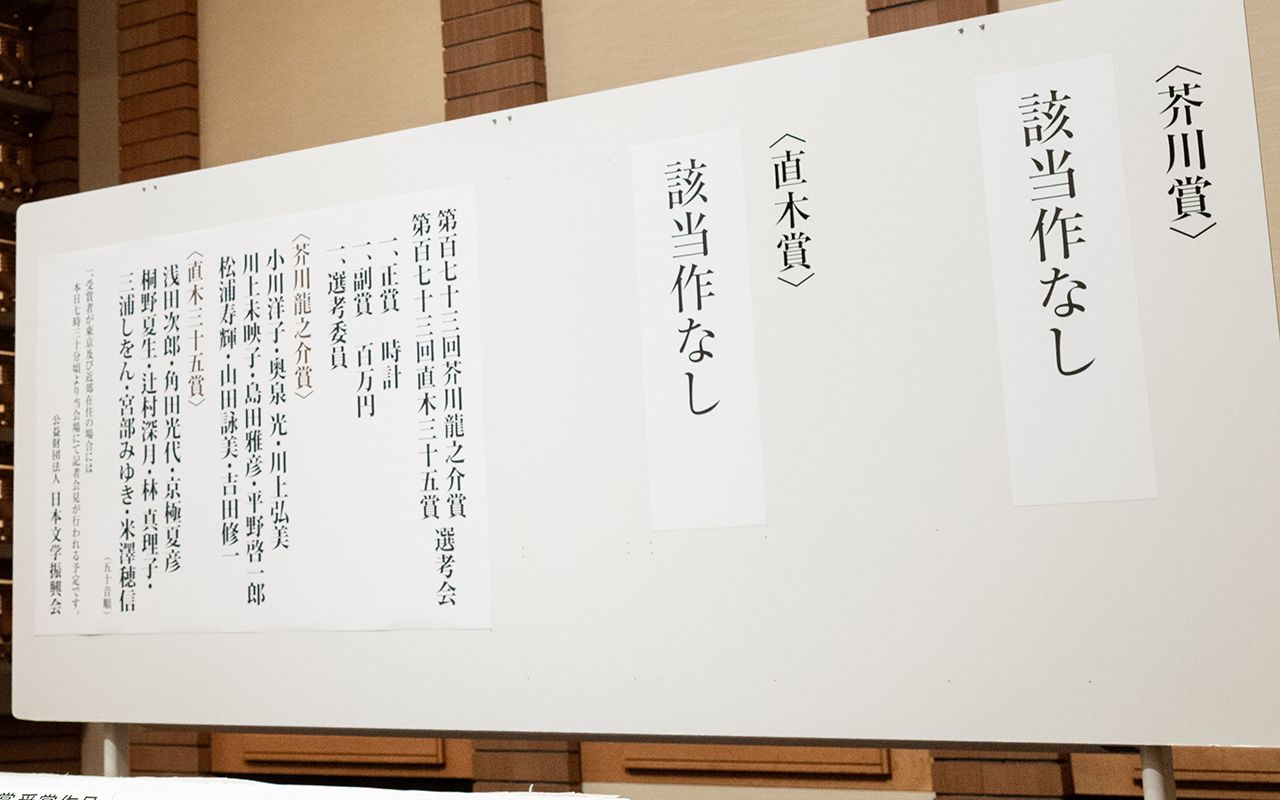 〈芥川賞〉
該当作なし
〈直木賞〉
該当作なし
第百七十三回芥川龍之介賞 選考会
第百七十三回直木三十五賞
一、正賞 時計
一、副賞 百万円
一、選考委員
〈芥川龍之介賞〉
小川洋子・奥泉 光・川上弘美
川上未映子・島田雅彦・平野啓一郎
松浦寿輝・山田詠美・吉田修一
〈直木三十五賞〉
浅田次郎・角田光代・京極夏彦
桐野夏生・辻村深月・林 真理子・
三浦しをん・宮部みゆき・米澤穂信
（五十音順）
一、受賞者が東京及び近郊在住の場合には
本日七時三十分頃より当会場にて記者会見が行われる予定です。
公益財団法人 日本文学振興会